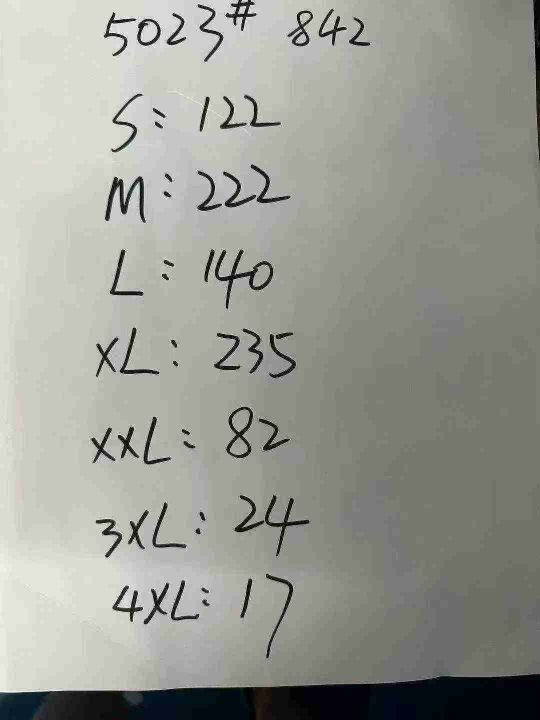 5023# 842
S: 122
M: 222
L: 140
XL: 235
XXL: 82
3XL: 24
4XL: 17